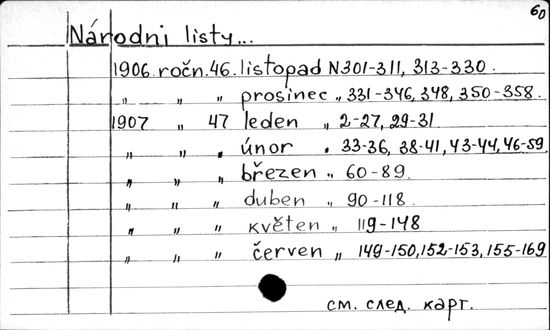 60
Národni listy...
1906. ročn. 46. listopad N301-311, 313-330.
„ „ „ prosinec „ 331-346, 348, 350-358.
1907 „ 47 leden „ 2-27, 29-31
„ „ „ únor „ 33-36, 38-41, 43-44, 46-59.
„ „ „ březen „ 60-89.
„ „ „ duben „ 90-118.
„ „ „ květen „ 119-148
„ „ „ červen „ 149-150, 152-153, 155-169
см. след. карт.